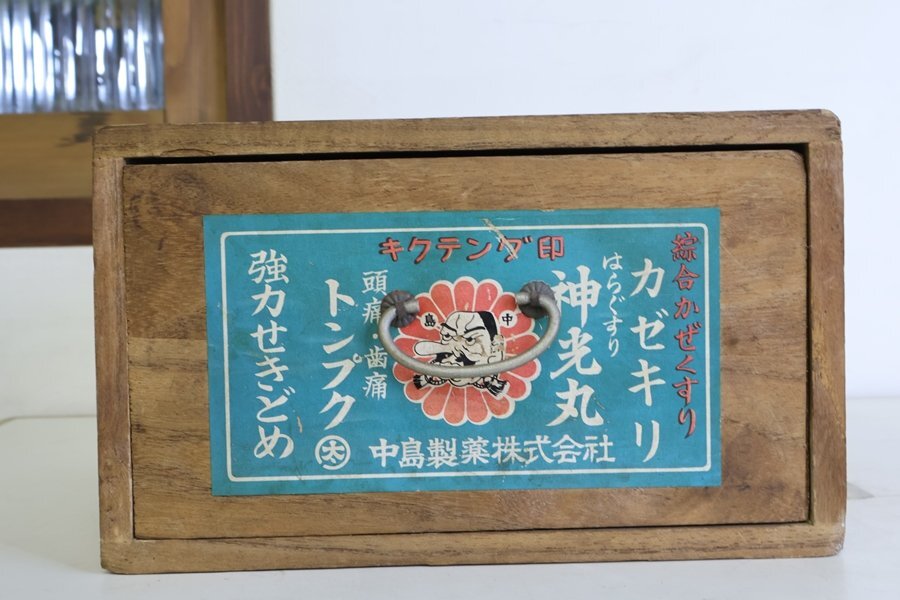 キクテング印
綜合かぜくすり
カゼキリ
はらぐすり
神光丸
中島
頭痛・歯痛
トンプク
強力せきどめ
中島製薬株式会社